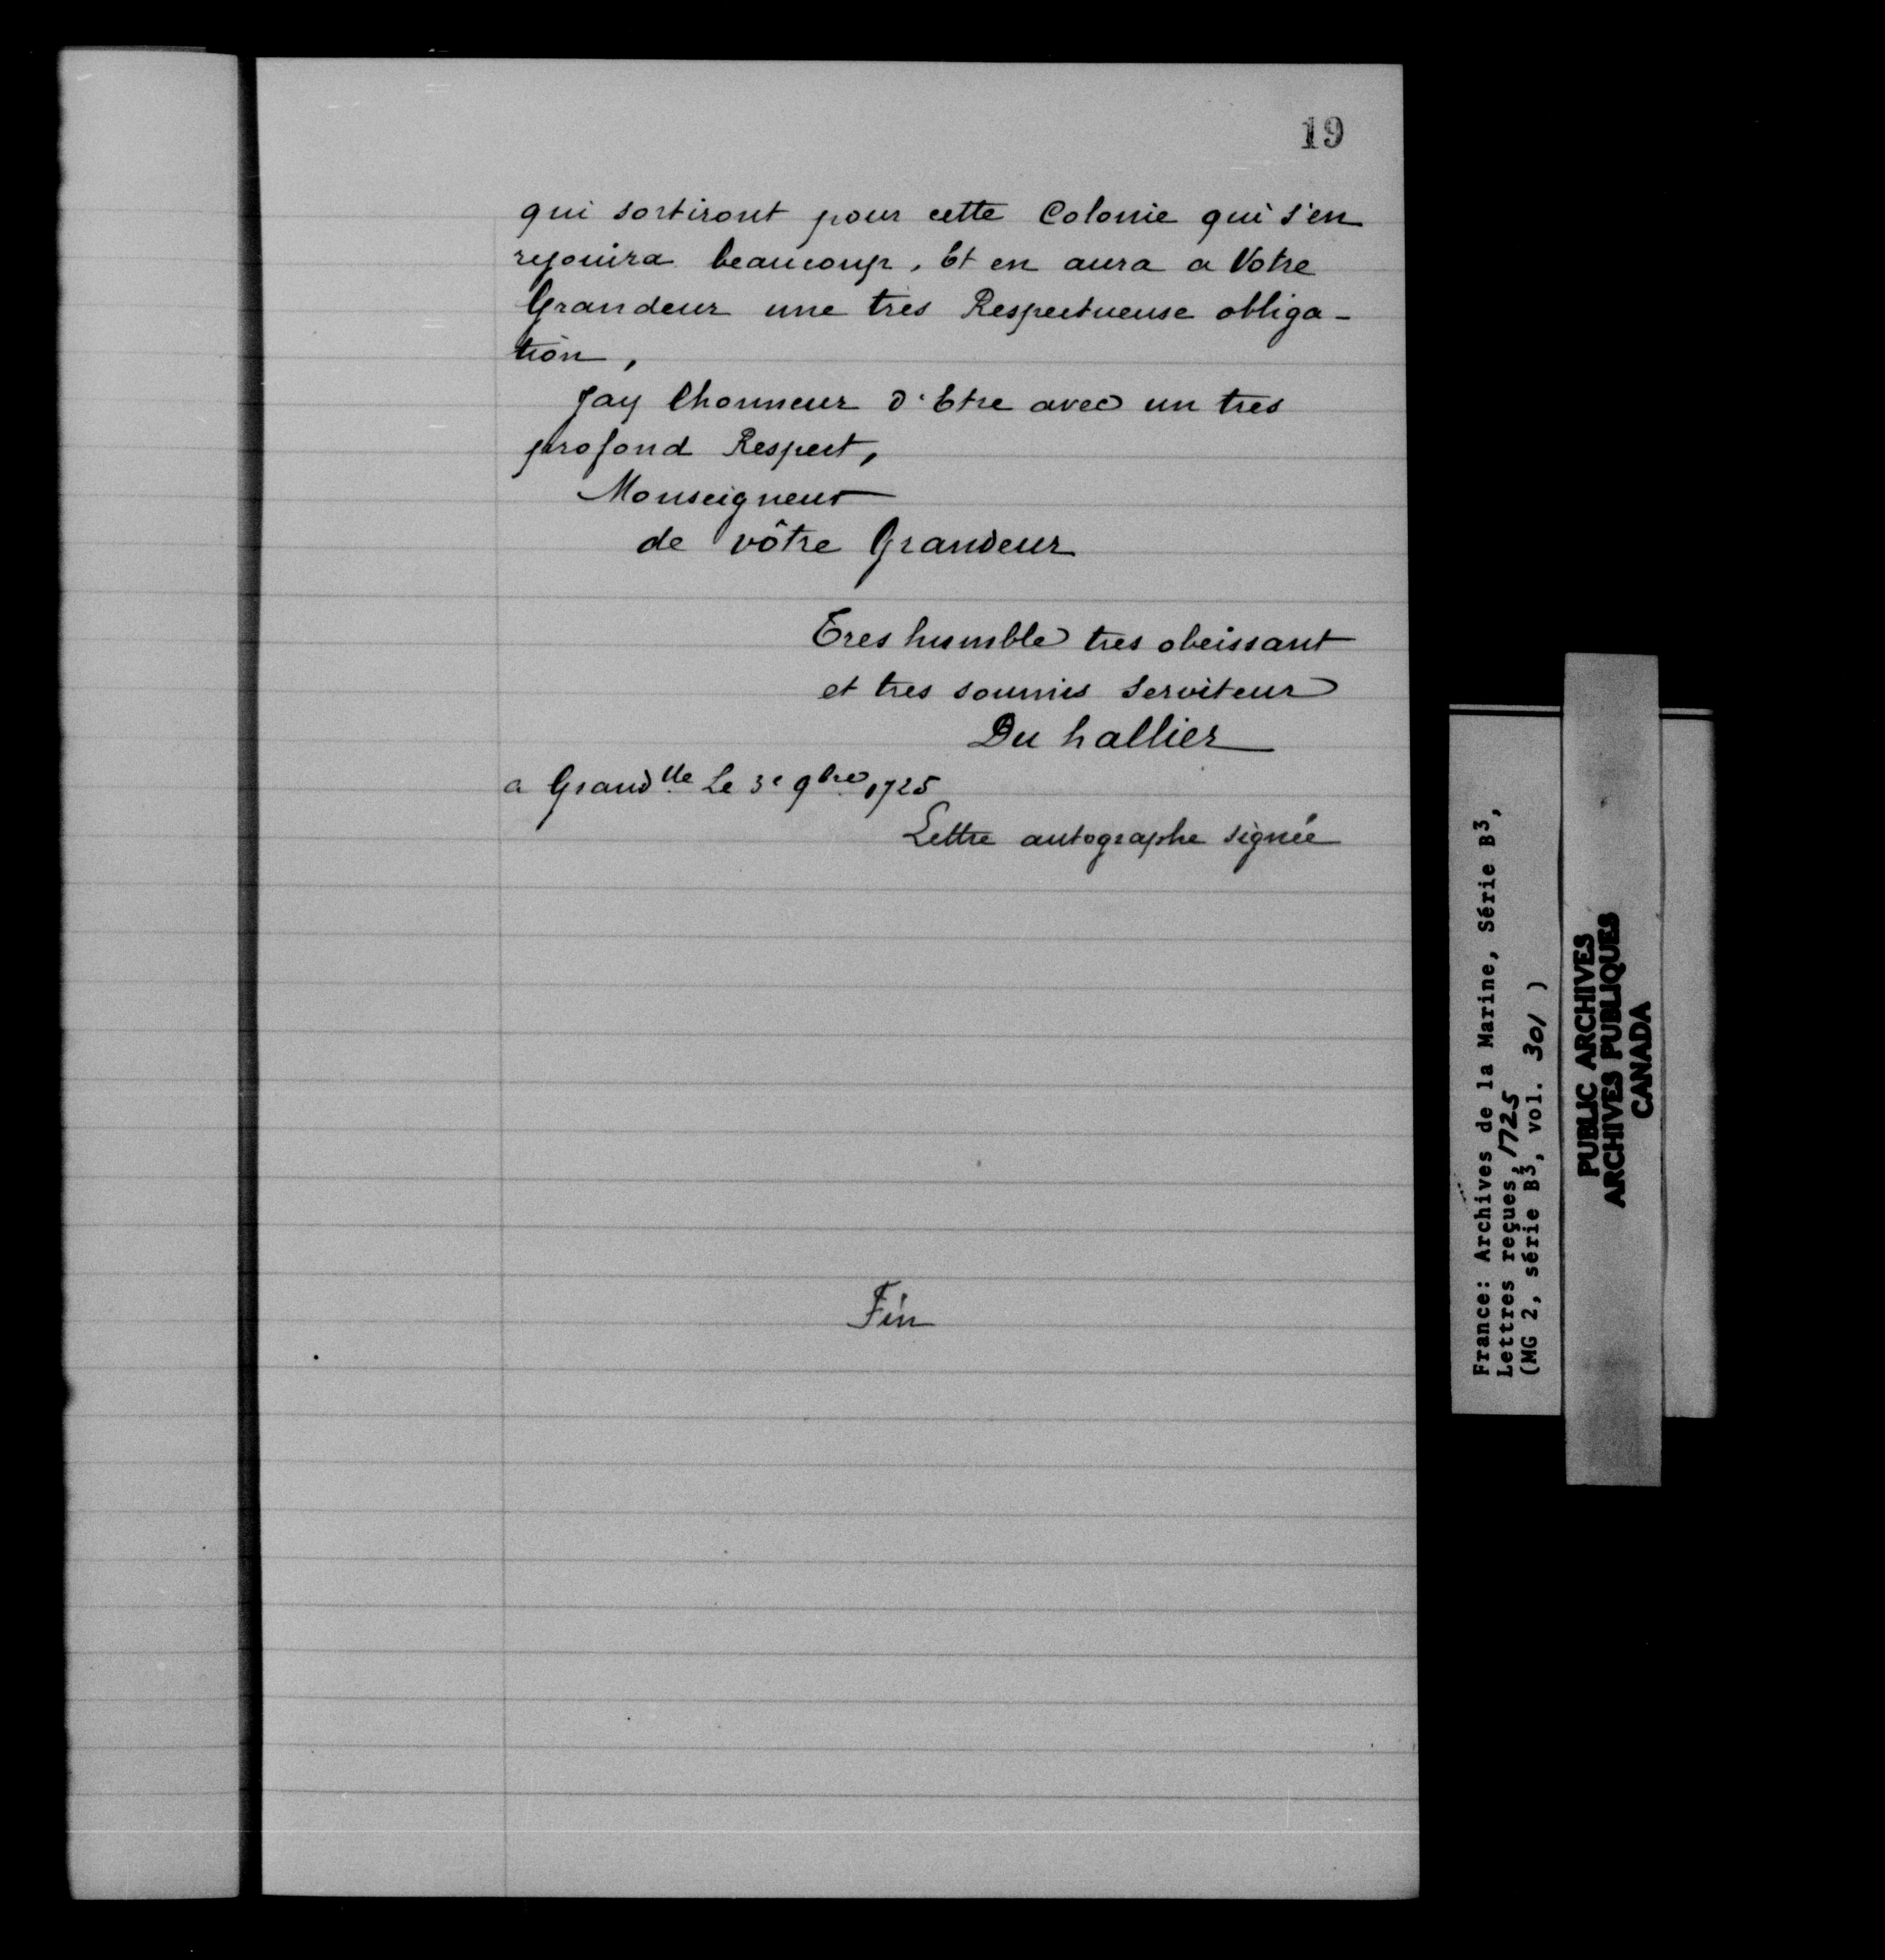 19
qui sortiront pour cette Colonie qui s'en
rejouira beaucoup, Et en aura a Votre
Grandeur une tres Respectueuse obliga-
tion,
Jay Lhonneur d'Etre avec un tres
profond Respect,
Monseigneur
de vôtre Grandeur
Tres humble tres obeissant
et tres soumis serviteur
Du hallier
a Grandlle Le 3e 9bre 1725
Lettre autographe signée
Fin
France: Archives de la Marine, Série B3,
Lettres reçues, 1725
(MG 2, série B3, vol. 301 )
PUBLIC ARCHIVES
ARCHIVES PUBLIQUES
CANADA